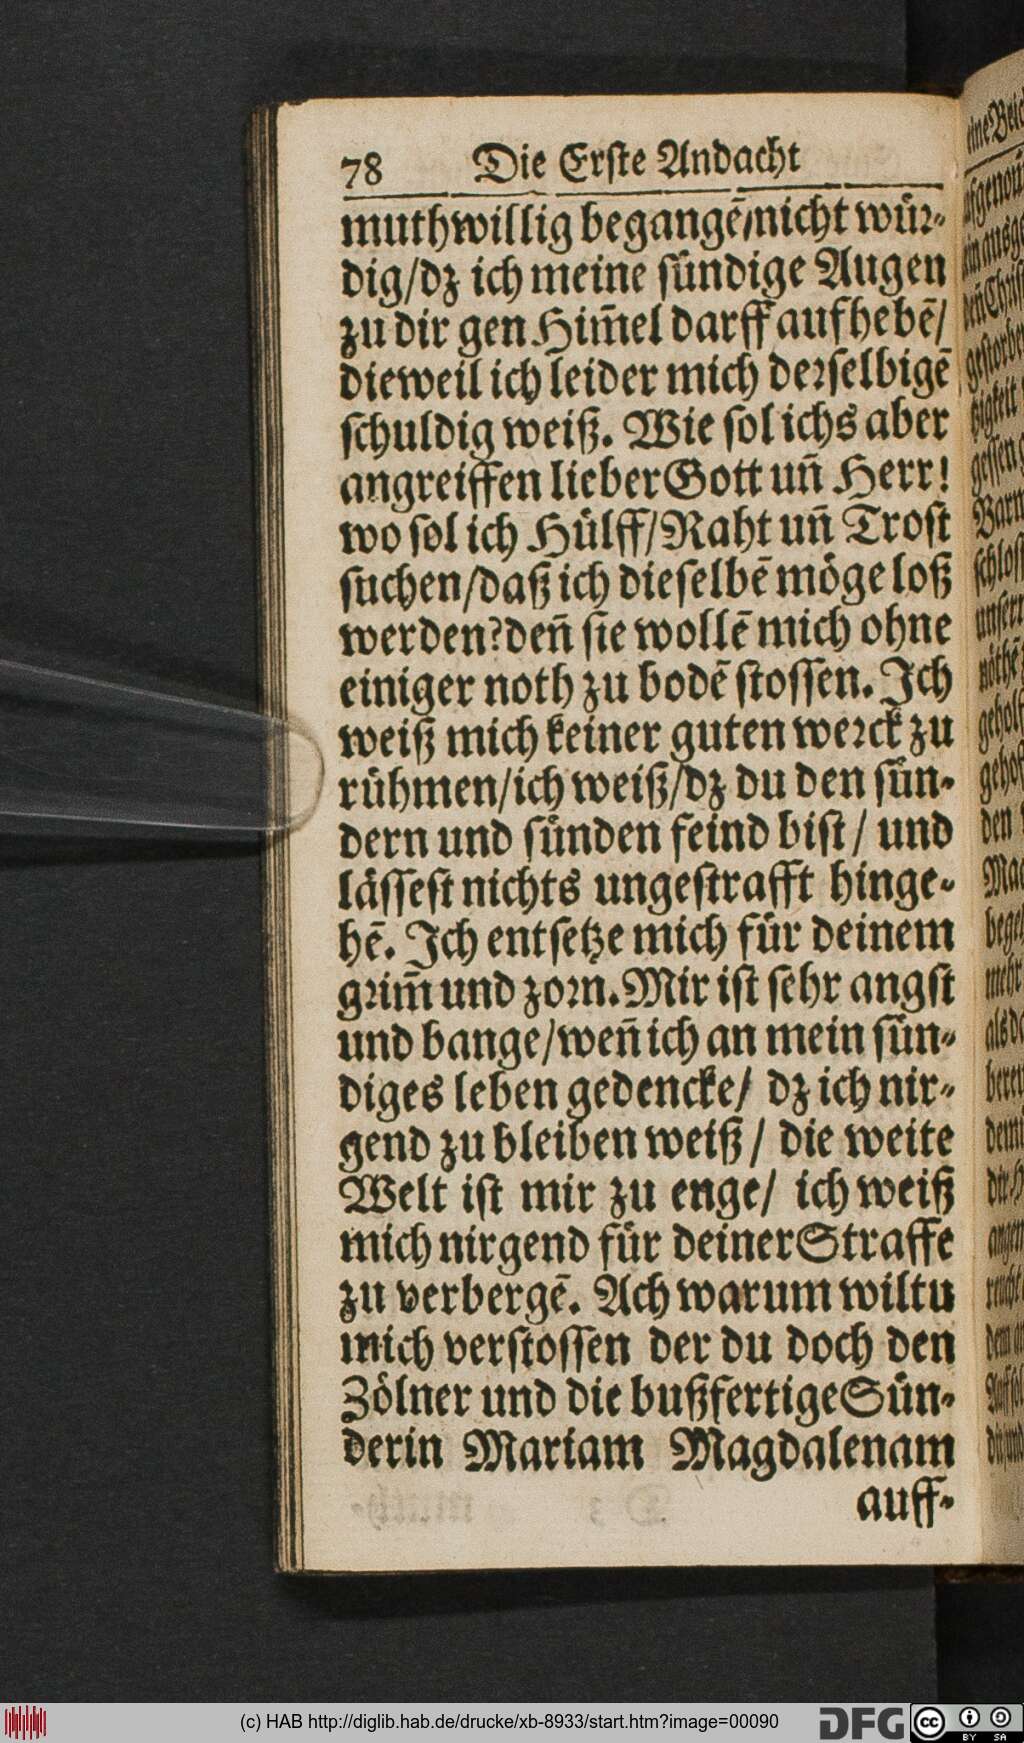 78 Die Erste Andacht
muthwillig begangē/nicht wür-
dig/dz ich meine sündige Augen
zu dir gen Him̄el darff aufhebē/
dieweil ich leider mich derselbigē
schuldig weiß. Wie sol ichs aber
angreiffen lieber Gott un̄ Herr!
wo sol ich Hülff/Raht un̄ Trost
suchen/daß ich dieselbē möge loß
werden? den̄ sie wollē mich ohne
einiger noth zu bodē stossen. Ich
weiß mich keiner guten werck zu
rühmen/ich weiß/dz du den sün-
dern und sünden feind bist/ und
lässest nichts ungestrafft hinge-
hē. Ich entsetze mich für deinem
grim̄ und zorn. Mir ist sehr angst
und bange/wen̄ ich an mein sün-
diges leben gedencke/ dz ich nir-
gend zu bleiben weiß/ die weite
Welt ist mir zu enge/ ich weiß
mich nirgend für deiner Straffe
zu verbergē. Ach warum wiltu
mich verstossen der du doch den
Zölner und die bußfertige Sün-
derin Mariam Magdalenam
auff-
(c) HAB http://diglib.hab.de/drucke/xb-8933/start.htm?image=00090
DFG
cc BY SA